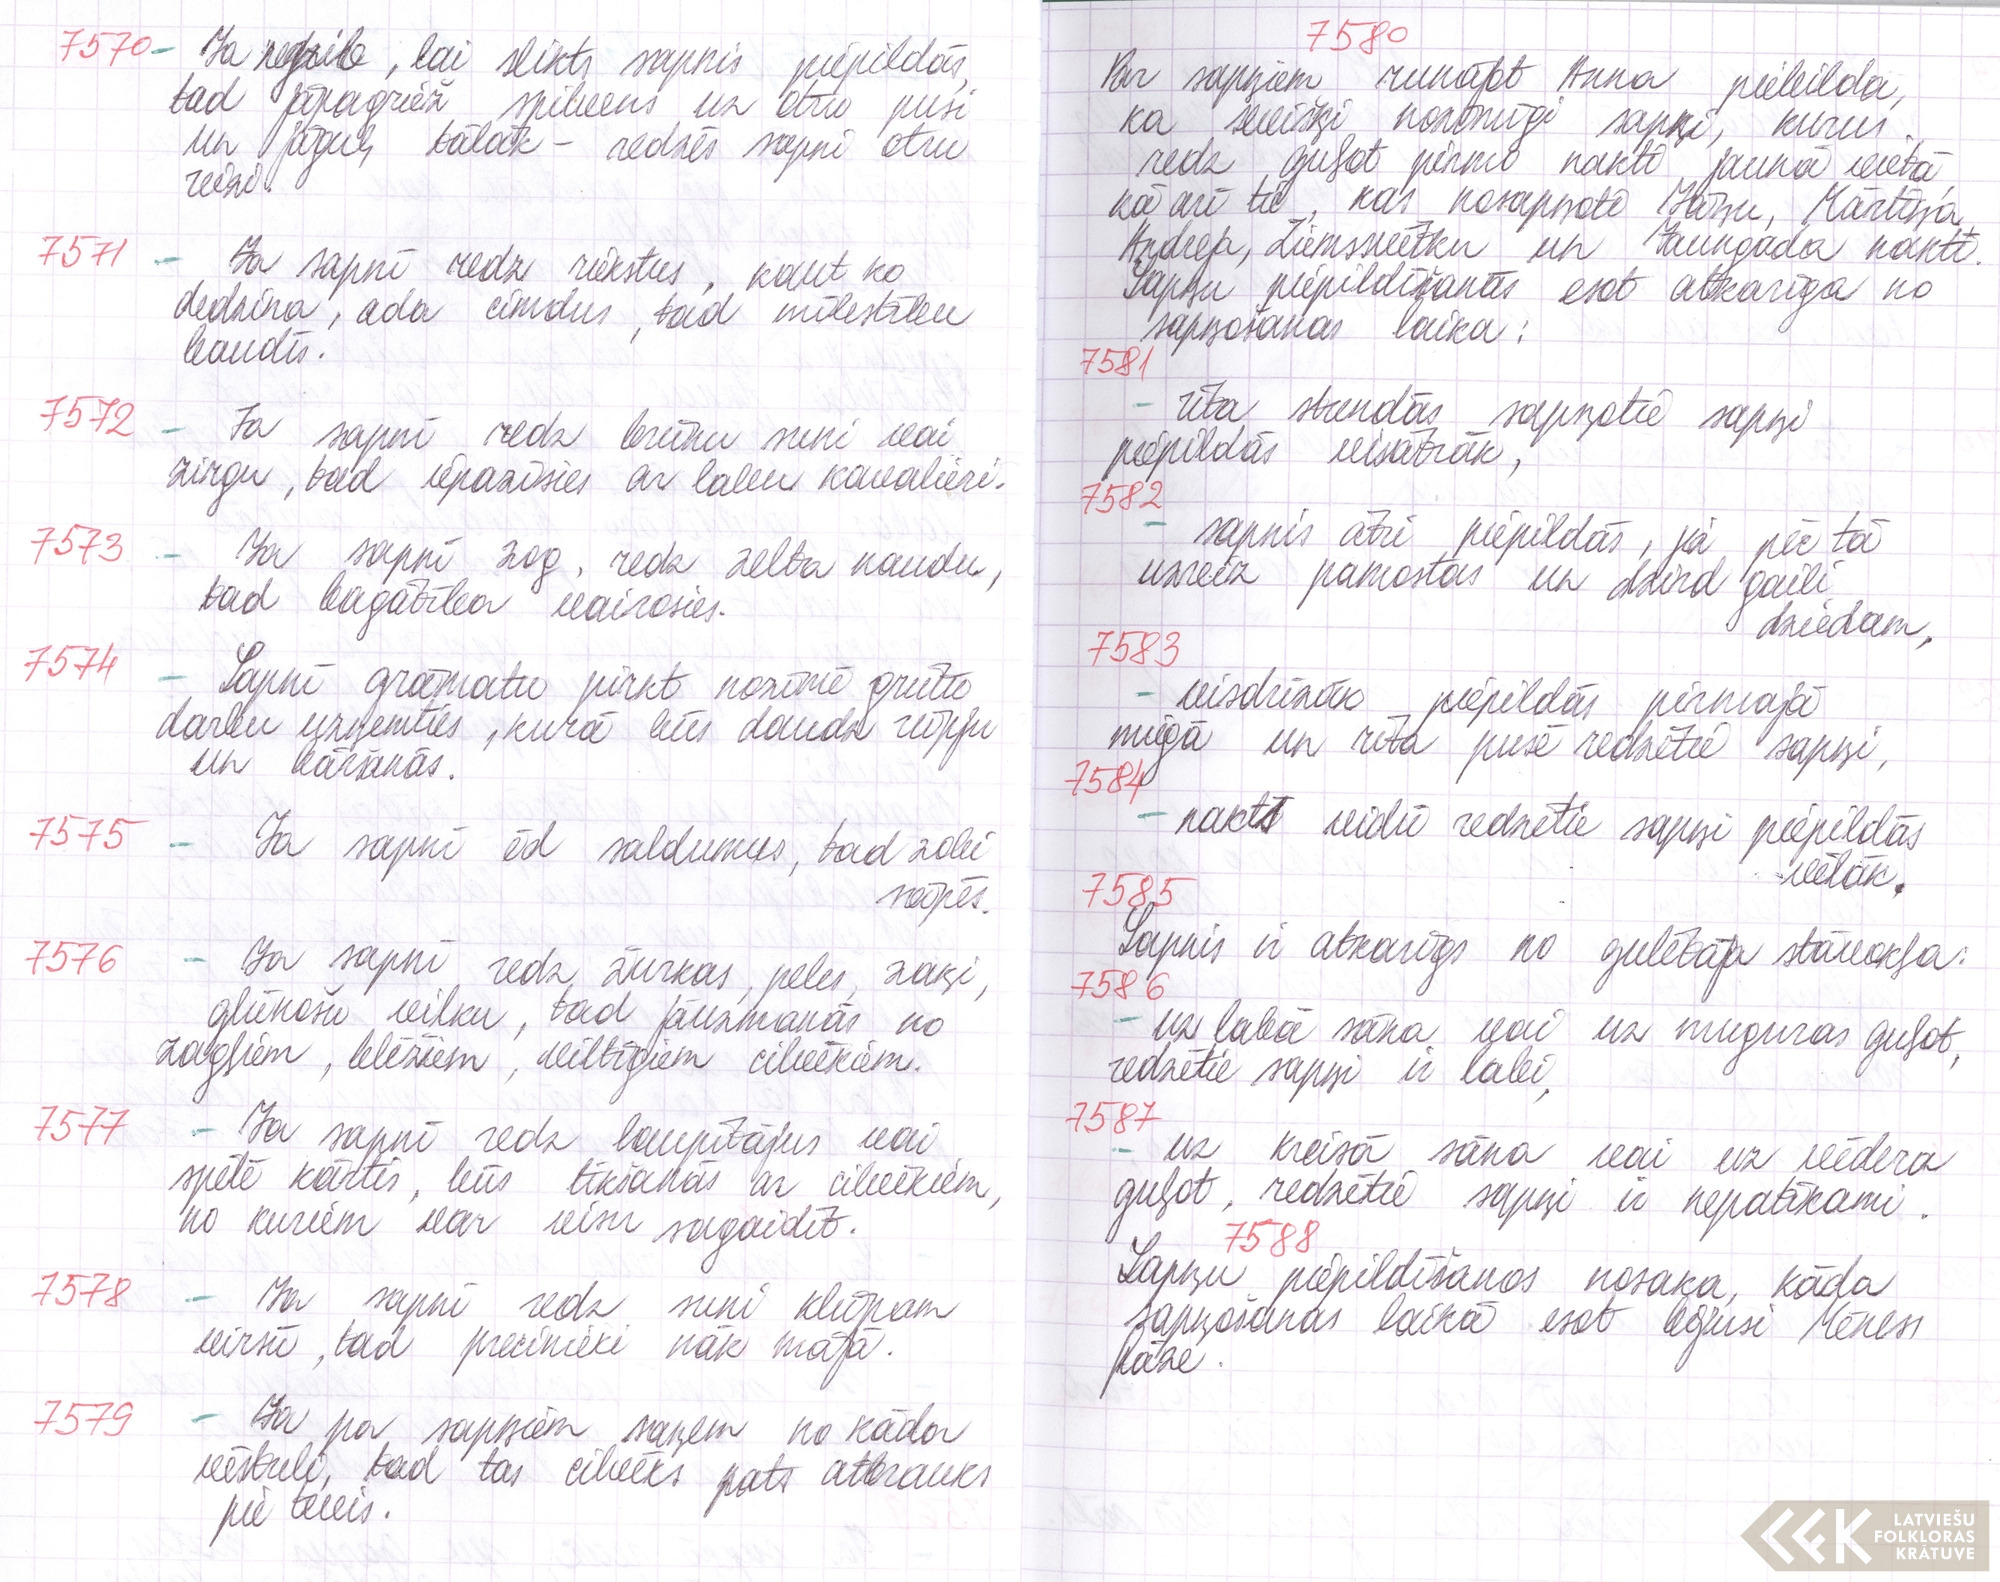 7570 - Ja negrib, lai slikts sapnis piepildās,
tad jāpagriež spilvens uz otru pusi
un jāguļ tālāk - redzēs sapni otru
reizi.
7571 - Ja sapnī redz riekstus, kaut ko
dedzina, ada cimdus, tad mīlestību
baudīs.
7572 - Ja sapnī redz brūnu suni vai
zirgu, tad iepazīsies ar labu kavalieri.
7573 - Ja sapnī zog, redz zelta naudu,
tad bagātība vairosies.
7574 - Sapnī grāmatu pirkt nozīmē grūtu
darbu uzņemties, kurā būs daudz rūpju
un bāršanās.
7575 - Ja sapnī ēd saldumus, tad zobi
sāpēs.
7576 - Ja sapnī redz žurkas, peles, zaķi,
glūnošu vilku, tad jāuzmanās no
zagļiem, blēžiem, viltīgiem cilvēkiem.
7577 - Ja sapnī redz laupītājus vai
spēlē kārtis, būs tikšanās ar cilvēkiem,
no kuriem var visu sagaidīt.
7578 - Ja sapnī redz suni klūpam
virsū, tad precinieki nāk mājā.
7579 - Ja pa sapņiem saņem no kāda
vēstuli, tad tas cilvēks pats atbrauks
pie tevis.
7580
Par sapņiem runājot Anna piebilda,
ka sevišķi nozīmīgi sapņi, kurus
redz guļot pirmo nakti jaunā vietā,
kā arī tie, kas nosapņoti Jāņu, Mārtiņa,
Andreja, Ziemsvētku un Jaungada naktī.
Sapņu piepildīšanās esot atkarīga no
sapņošanas laika:
7581
- rīta stundās sapņotie sapņi
piepildās visātrāk,
7582
- sapnis ātri piepildās, ja pēc tā
uzreiz pamostas un dzird gaili
dziedam,
7583
- visdrīzāk piepildās pirmajā
miegā un rīta pusē redzētie sapņi,
7584
- nakts vidū redzētie sapņi piepildās
vēlāk.
7585
Sapnis ir atkarīgs no gulētāja stāvokļa:
7586
- uz labā sāna vai uz muguras guļot,
redzētie sapņi ir labi,
7587
- uz kreisā sāna vai uz vēdera
guļot, redzētie sapņi ir nepatīkami.
7588
Sapņu piepildīšanos nosaka, kāda
sapņošanas laikā esot bijusi Mēness
fāze.
LATVIEŠU
FOLKLORAS
KRĀTUVE